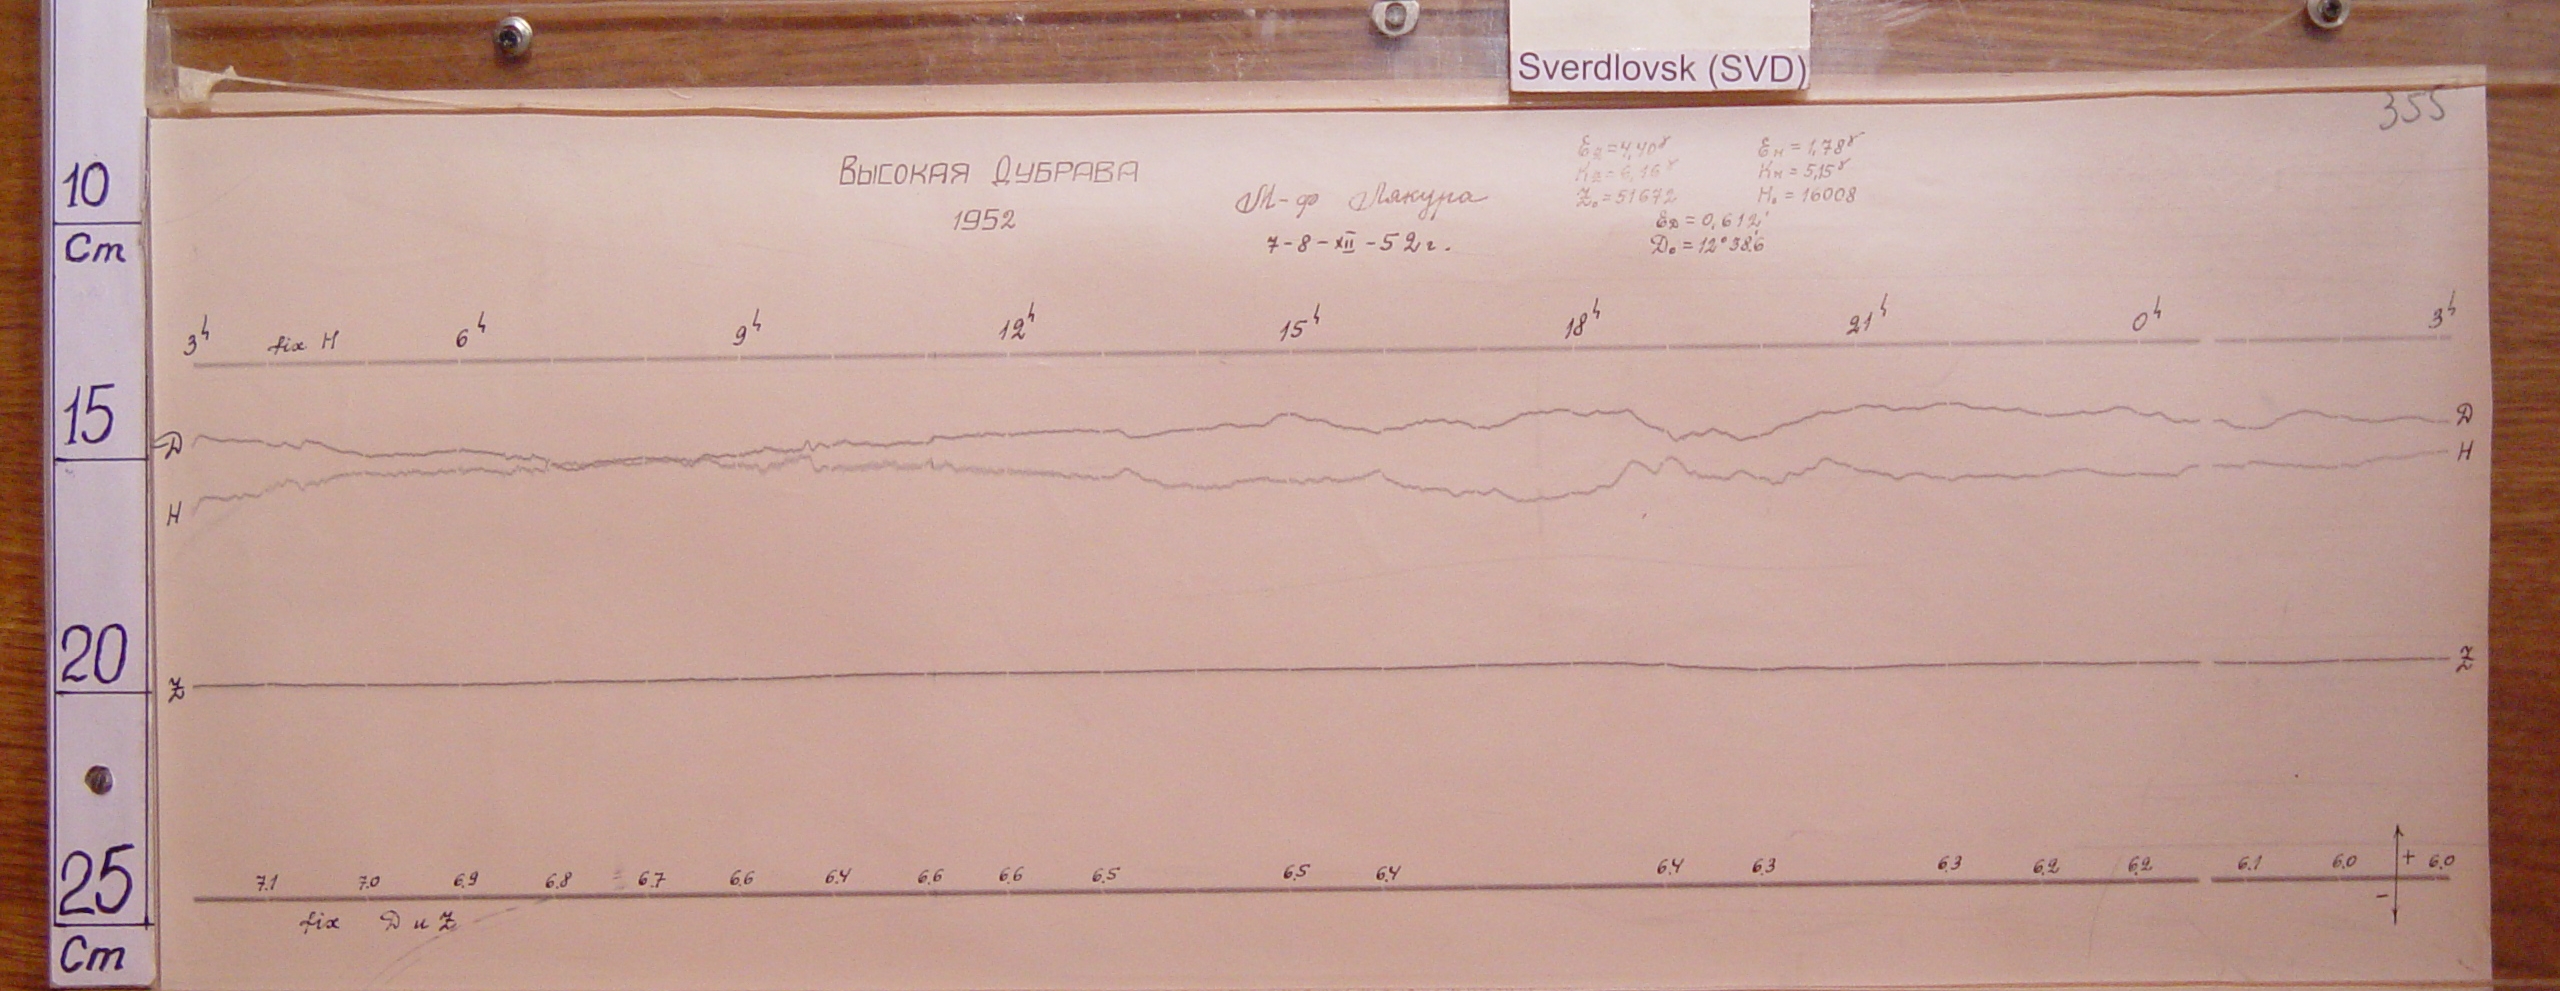 Sverdlovsk (SVD)
355
10
Cm
15
20
25
Cm
Высокая Дубрава
1952
М-ф Лякура
7-8-XII-52 г.
Ez=4,40γ Eн=1,78γ
Kz=6,16γ Kн=5,15γ
Z₀=51672 H₀=16008
Eд=0,612'
D₀=12°38,6
3ʰ fix H 6ʰ 9ʰ 12ʰ 15ʰ 18ʰ 21ʰ 0ʰ 3ʰ
D D
H H
Z Z
7.1 7.0 6.9 6.8 6.7 6.6 6.4 6.6 6.6 6.5 6.5 6.4 6.4 6.3 6.3 6.2 6.2 6.1 6.0 + 6.0
-
fix D и Z